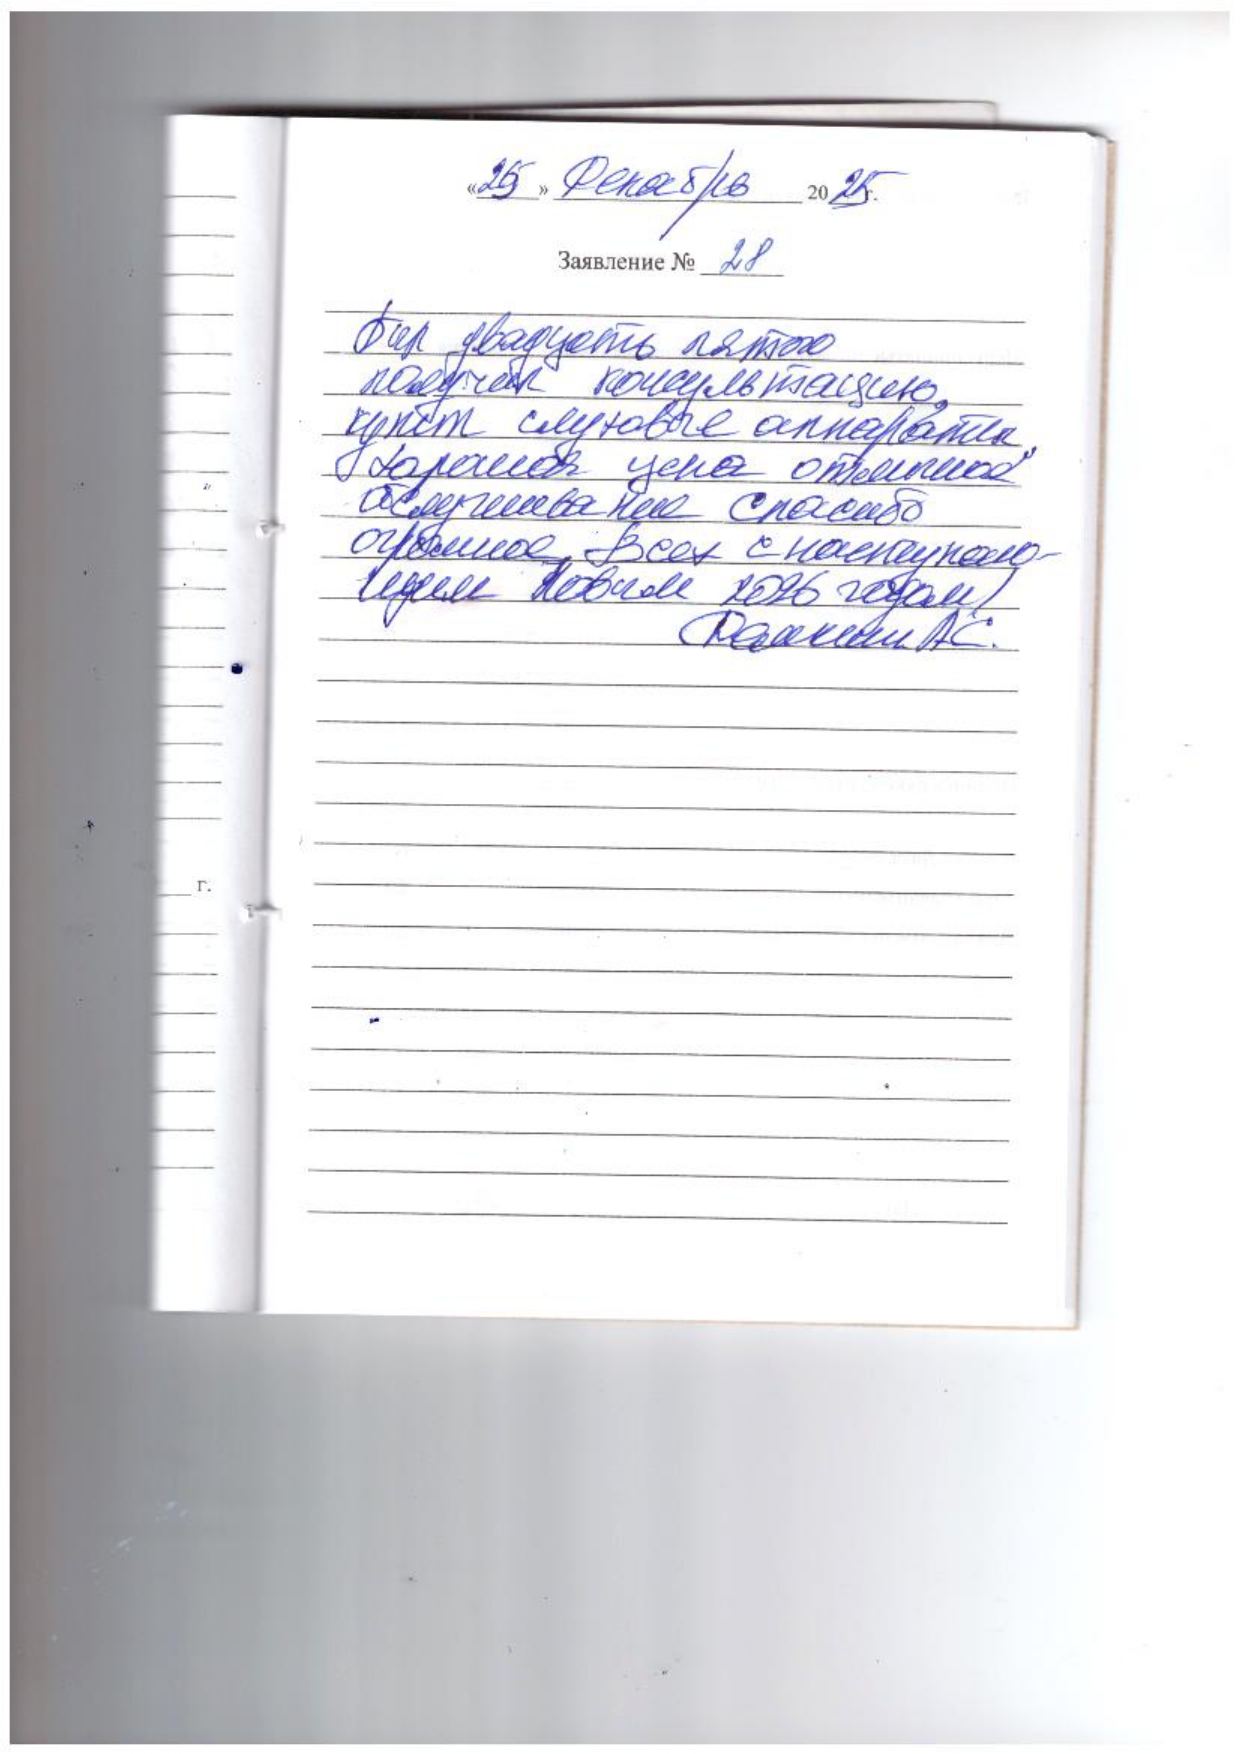 «25» Декабрь 2025 г.
Заявление № 28
Был двадцать пятого
получил консультацию,
купил слуховые аппараты,
хорошая цена отличное
обслуживание спасибо
огромное, Всех с наступаю-
щим Новым 2026 годом!
А.С.
г.